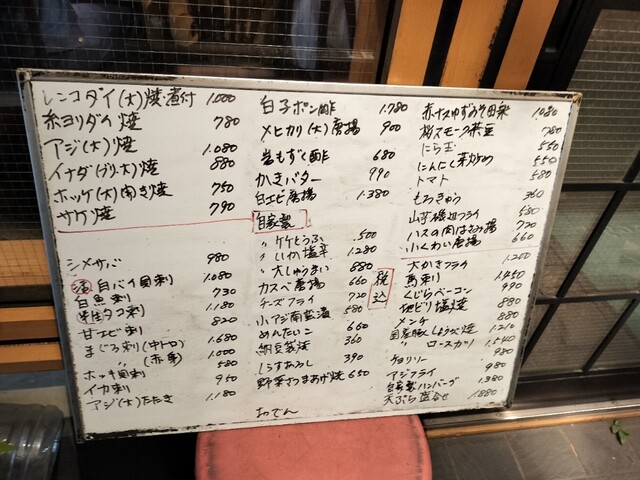 レンコダイ(大)焼・煮付 1.000
糸ヨリダイ焼 780
アジ(大)焼 1.080
イナダ(ブリ大)焼 880
ホッケ(大)開き焼 750
サケ焼 790
シメサバ 980
活 白バイ貝刺 1.080
白魚刺 730
生タコ刺 1.180
甘エビ刺 820
まぐろ刺(中トロ) 1.680
〃 (赤身) 1.000
ホッキ貝刺 580
イカ刺 950
アジ(大)たたき 1.180
白子ポン酢 1.780
メヒカリ(大)唐揚 900
岩もずく酢 680
かきバター 990
白エビ唐揚 1.380
自家製
〃 ケケとうふ .500
〃 いか塩辛 1.280
〃 大しゅうまい 880
カスベ唐揚 660
チーズフライ 720
小アジ南蛮漬 580
めんたいこ 660
納豆袋焼 360
しらすおろし 390
野菜さつまあげ焼 650
おでん
税込
赤ナスゆずみそ田楽 1080
桜スモーク煮玉 780
にら玉 550
にんにく芽炒め 550
トマト 580
もろきゅう 360
山芋磯辺フライ 580
ハスの肉はさみ揚 720
小くわい唐揚 660
大かきフライ 1.200
馬刺 1.450
くじらベーコン 990
地どり塩焼 880
メンチ 880
国産豚しょうが焼 1.210
〃 ロースカツ 1.540
チョリソー 980
アジフライ 980
自家製ハンバーグ 1.380
天ぷら盛合せ 1.880